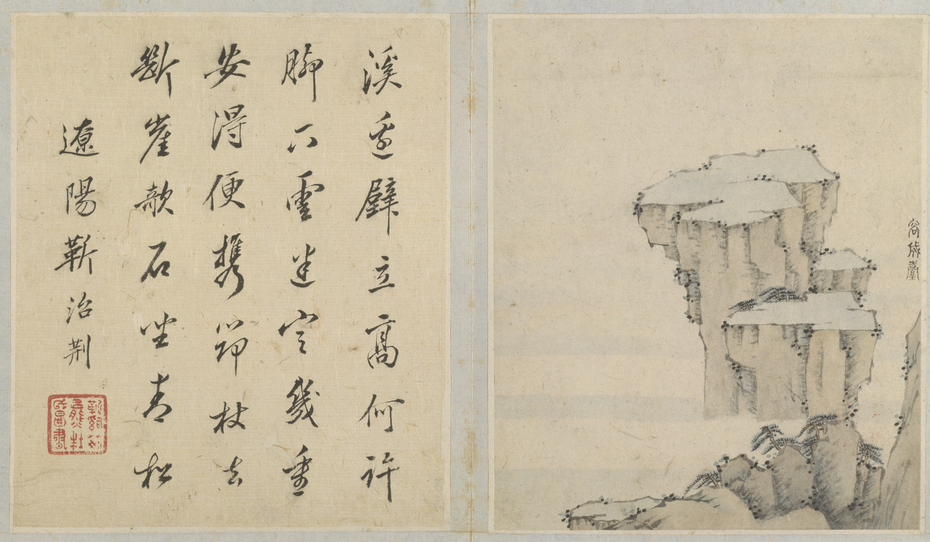 容成臺
溪邊壁立高何許
腳下雲迷定幾重
安得便攜筇杖去
斷崖欹石坐青松
遼陽靳治荊